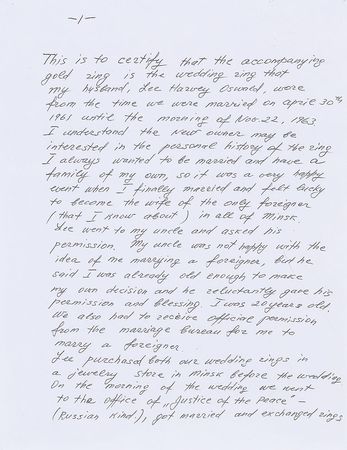 -1-
This is to certify that the accompanying
gold ring is the wedding ring that
my husband, Lee Harvey Oswald, wore
from the time we were married on april 30th
1961 until the morning of Nov. 22, 1963
I understand the new owner may be
interested in the personal history of the ring
I always wanted to be married and have a
family of my own, so it was a very happy
event when I finally married and felt lucky
to become the wife of the only foreigner
(that I know about) in all of Minsk.
Lee went to my uncle and asked his
permission. My uncle was not happy with the
idea of me marrying a foreigner, but he
said I was already old enough to make
my own decision and he reluctantly gave his
permission and blessing. I was 20 years old.
We also had to receive official permission
from the marriage bureau for me to
marry a foreigner
Lee purchased both our wedding rings in
a jewelry store in Minsk before the wedding
On the morning of the wedding we went
to the office of „Justice of the Peace" –
(Russian kind), got married and exchanged rings